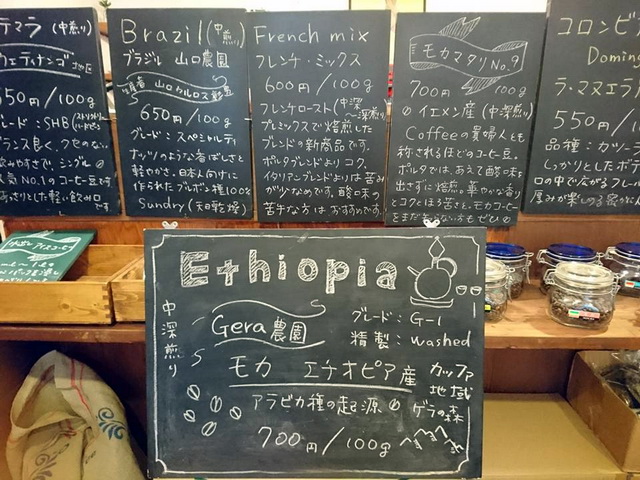 テマラ(中煎り)
50円/100g
Brazil(中煎り)
ブラジル 山口農園
650円/100g
グレード:スペシャルティ
ナッツのような香ばしさと
軽やかさ。日本人向けに
作られたブルボン種100%
Sundry(天日乾燥)
French mix
フレンチ・ミックス
600円/100g
フレンチロースト(中深 深煎り)
プレミックスで焙煎した
ブレンドの新商品です。
ポルタブレンドよりコク、
イタリアンブレンドよりは苦み
が少なめです。酸味の
苦手な方は おすすめです。
モカマタリ No.9
700円/100g
イエメン産(中深煎り)
Coffeeの貴婦人とも
称されるほどのコーヒー豆。
ポルタでは、あえて酸味を
出さずに焙煎。華やかな香り
とコクとほろ苦さと。モカコーヒー
をまだ
ない方も ぜひ
コロンビ
Doming
ラ・マヌエラ
550円/10
品種:カツーラ
しっかりとしたボデ
口の中で広がるフレー
Ethiopia
中深煎り
Gera農園
グレード:G-1
精製:washed
モカ エチオピア産
カッファ
地域
アラビカ種の起源の
ゲラの森
700円/100g